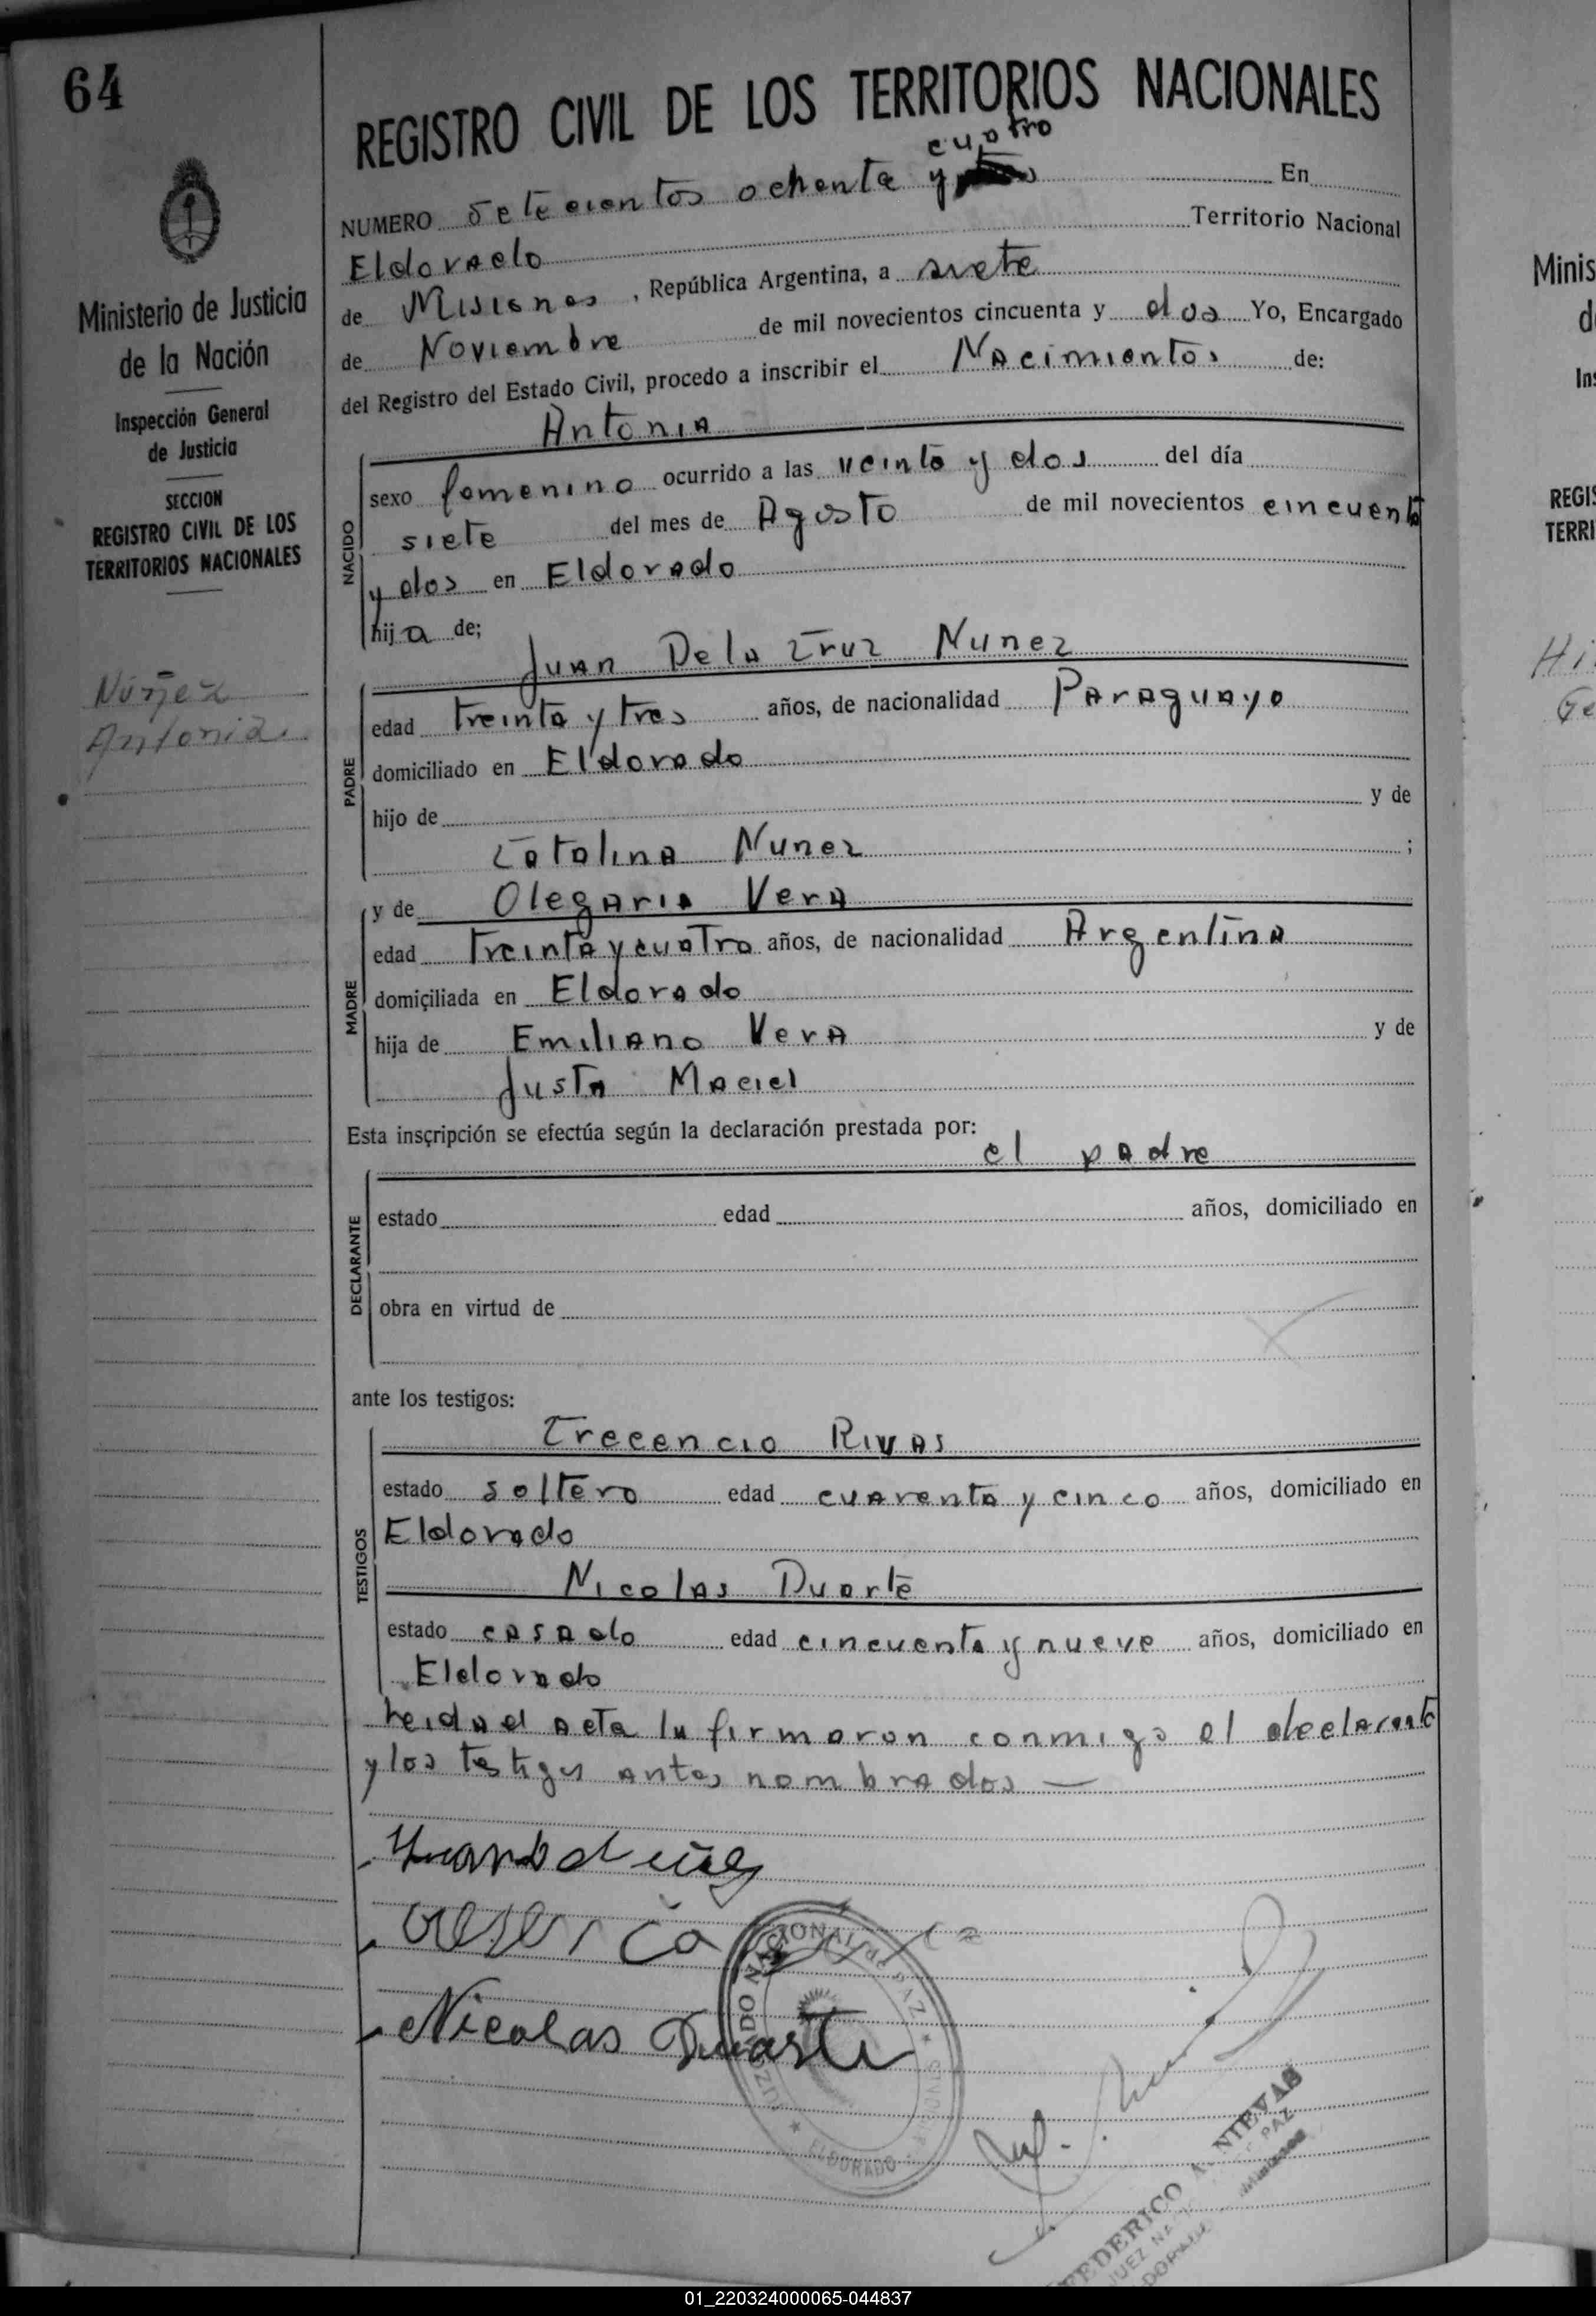 64
REGISTRO CIVIL DE LOS TERRITORIOS NACIONALES
cuatro
NUMERO setecientos ochenta y En
Eldorado Territorio Nacional
de Misiones, República Argentina, a siete
de Noviembre de mil novecientos cincuenta y dos Yo, Encargado
del Registro del Estado Civil, procedo a inscribir el Nacimientos de:
Antonia
sexo femenino ocurrido a las veinte y dos del día
siete del mes de Agosto de mil novecientos cincuenta
y dos en Eldorado
hija de;
NACIDO
Juan De la Cruz Nunez
edad treinta y tres años, de nacionalidad Paraguayo
domiciliado en Eldorado
hijo de y de
Catalina Nunez ;
PADRE
y de Olegaria Vera
edad treinta y cuatro años, de nacionalidad Argentina
domiciliada en Eldorado
hija de Emiliano Vera y de
Justa Maciel
MADRE
Esta inscripción se efectúa según la declaración prestada por:
el padre
estado edad años, domiciliado en
obra en virtud de
DECLARANTE
ante los testigos:
Crecencio Rivas
estado soltero edad cuarenta y cinco años, domiciliado en
Eldorado
Nicolas Duarte
estado casado edad cincuenta y nueve años, domiciliado en
Eldorado
TESTIGOS
Leida el acta la firmaron conmigo el declarante
y los testigos antes nombrados —
Nicolas Duarte
JUZGADO NACIONAL de PAZ
ELDORADO
FEDERICO A. NIEVAS
JUEZ NA PAZ
ELDORADO Misiones
Ministerio de Justicia
de la Nación
Inspección General
de Justicia
SECCION
REGISTRO CIVIL DE LOS
TERRITORIOS NACIONALES
Núñez
Antonia
Minis
d
Ins
REGIS
TERRI
Hi
Ge
01_220324000065-044837